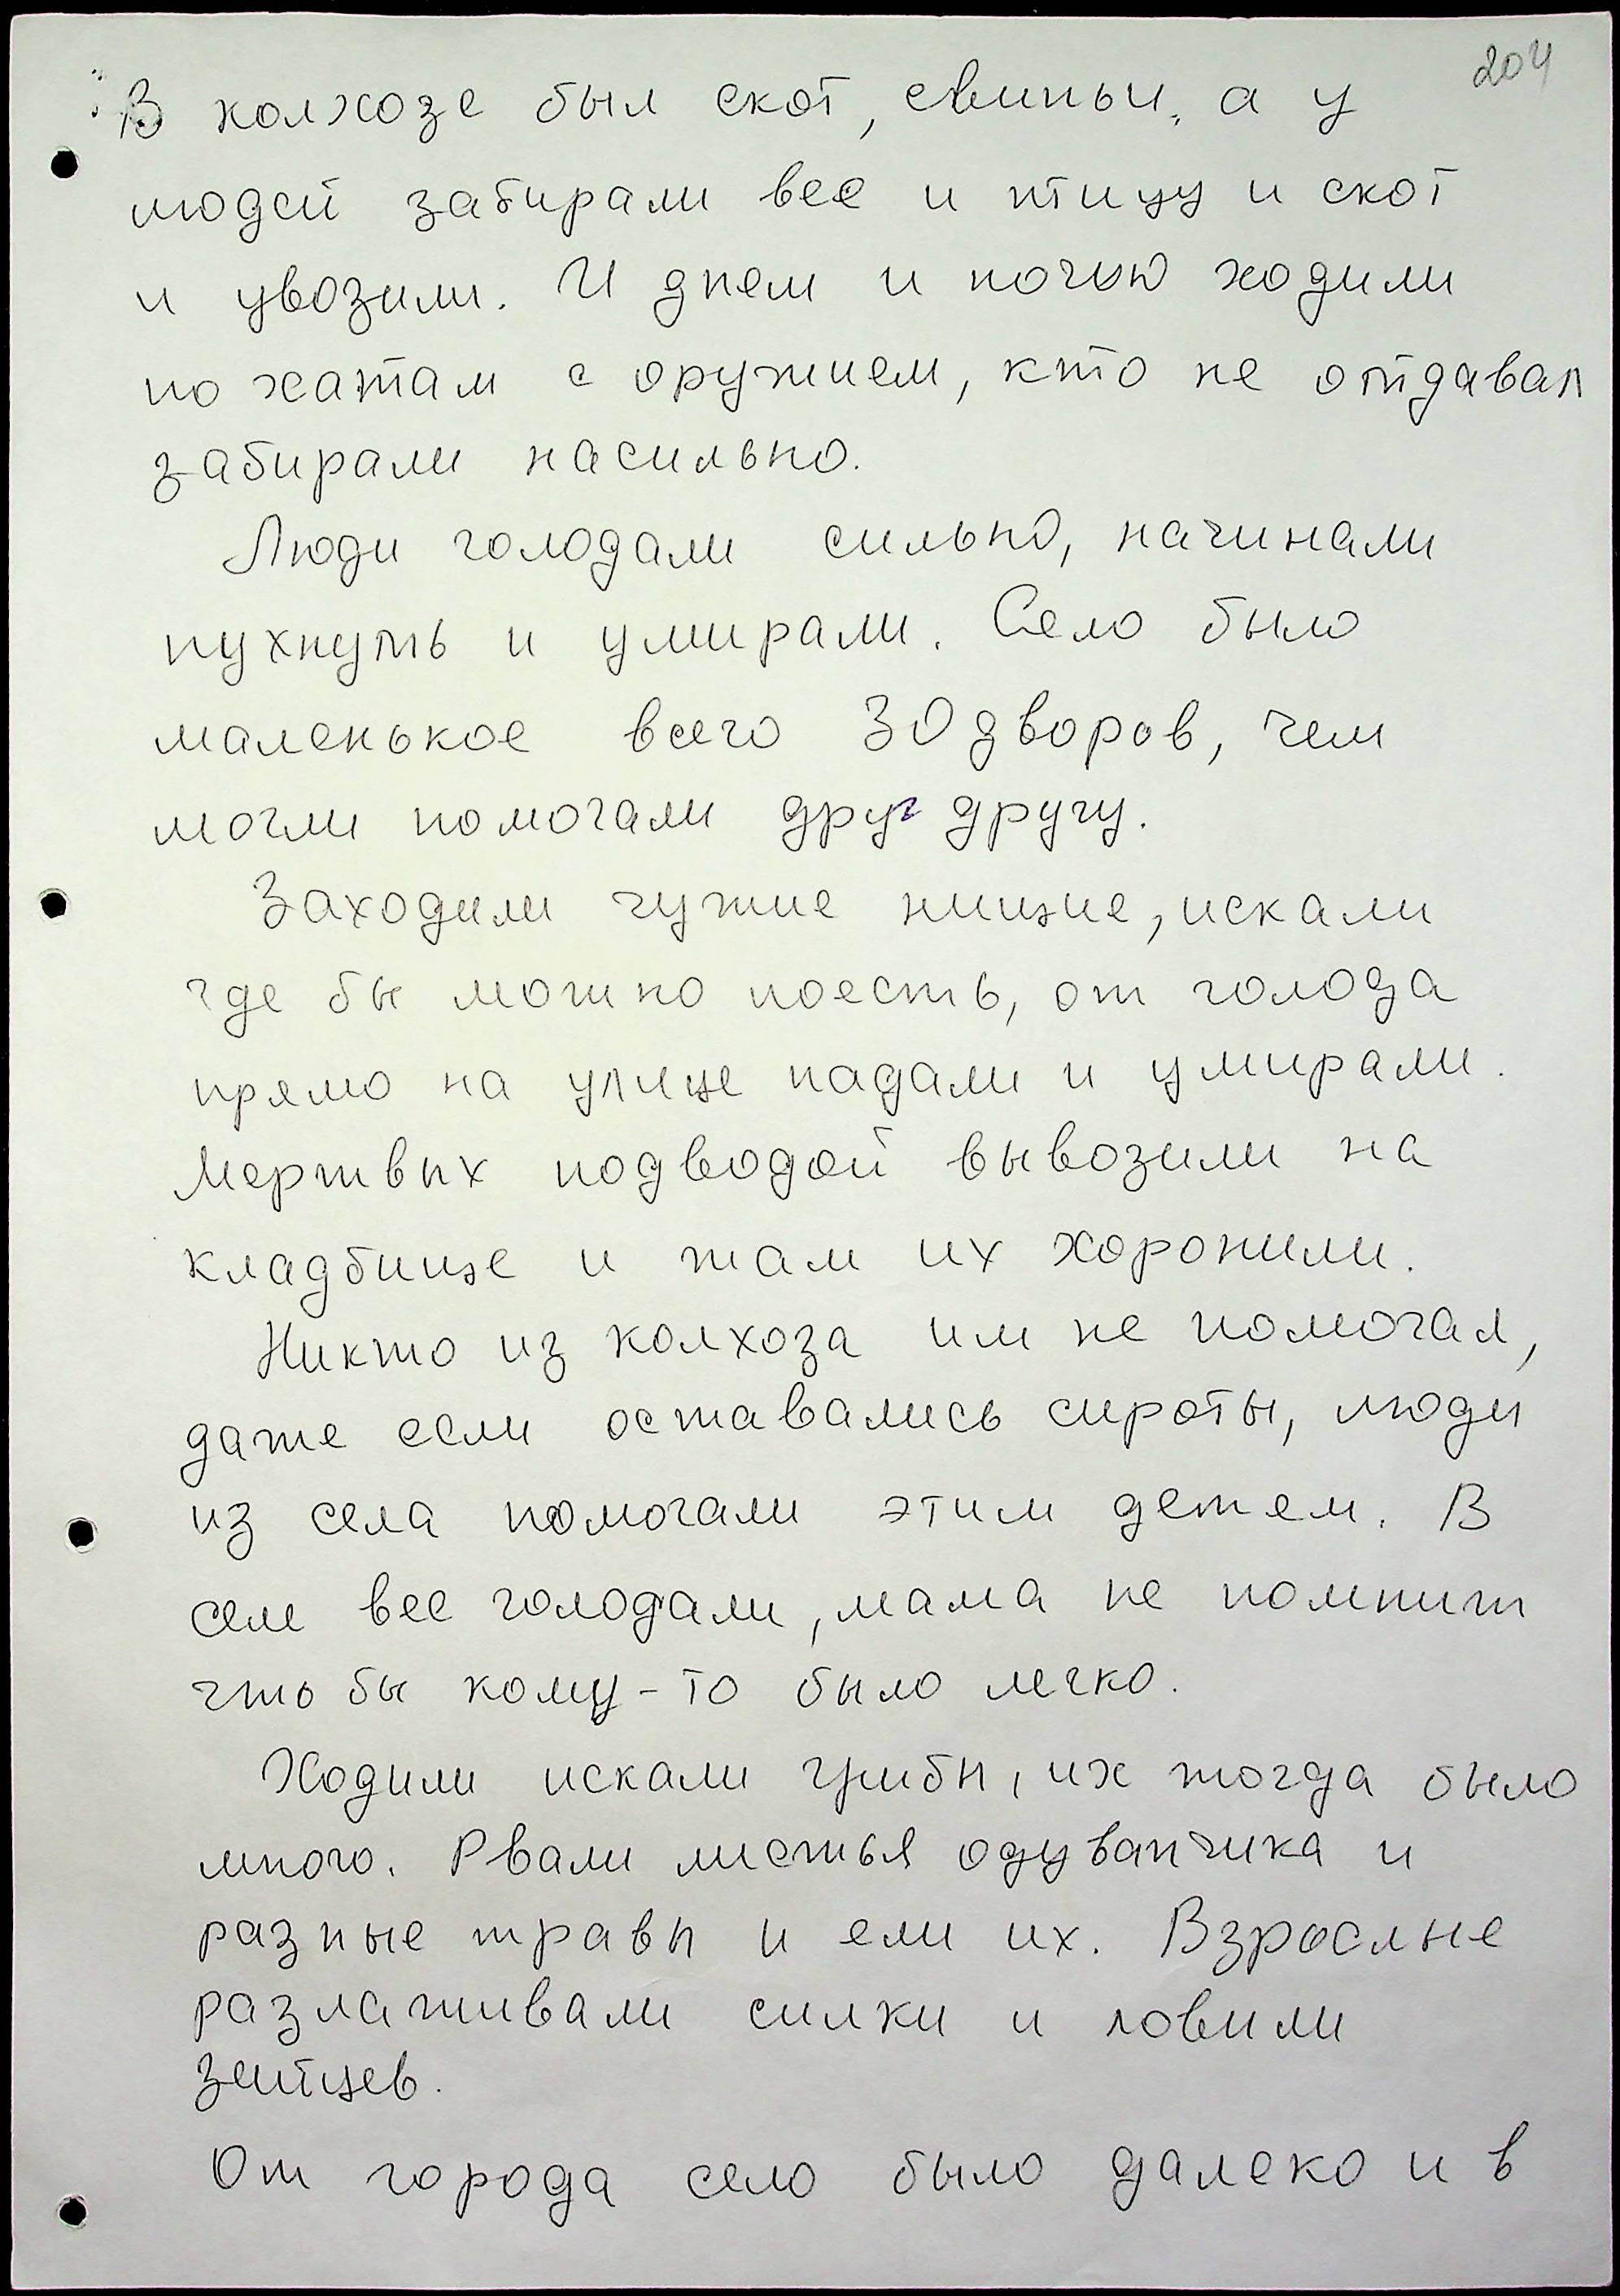 204
В колхозе был скот, свиньи, а у
людей забирали все и птицу и скот
и увозили. И днем и ночью ходили
по хатам с оружием, кто не отдавал
забирали насильно.
Люди голодали сильно, начинали
пухнуть и умирали. Село было
маленькое всего 30 дворов, чем
могли помогали друг другу.
Заходили чужие нищие, искали
где бы можно поесть, от голода
прямо на улице падали и умирали.
Мертвых подводой вывозили на
кладбище и там их хоронили.
Никто из колхоза им не помогал,
даже если оставались сироты, люди
из села помогали этим детям. В
селе все голодали, мама не помнит
что бы кому-то было легко.
Ходили искали грибы, их тогда было
много. Рвали листья одуванчика и
разные травы и ели их. Взрослые
разлаживали силки и ловили
зайцев.
От города село было далеко и в